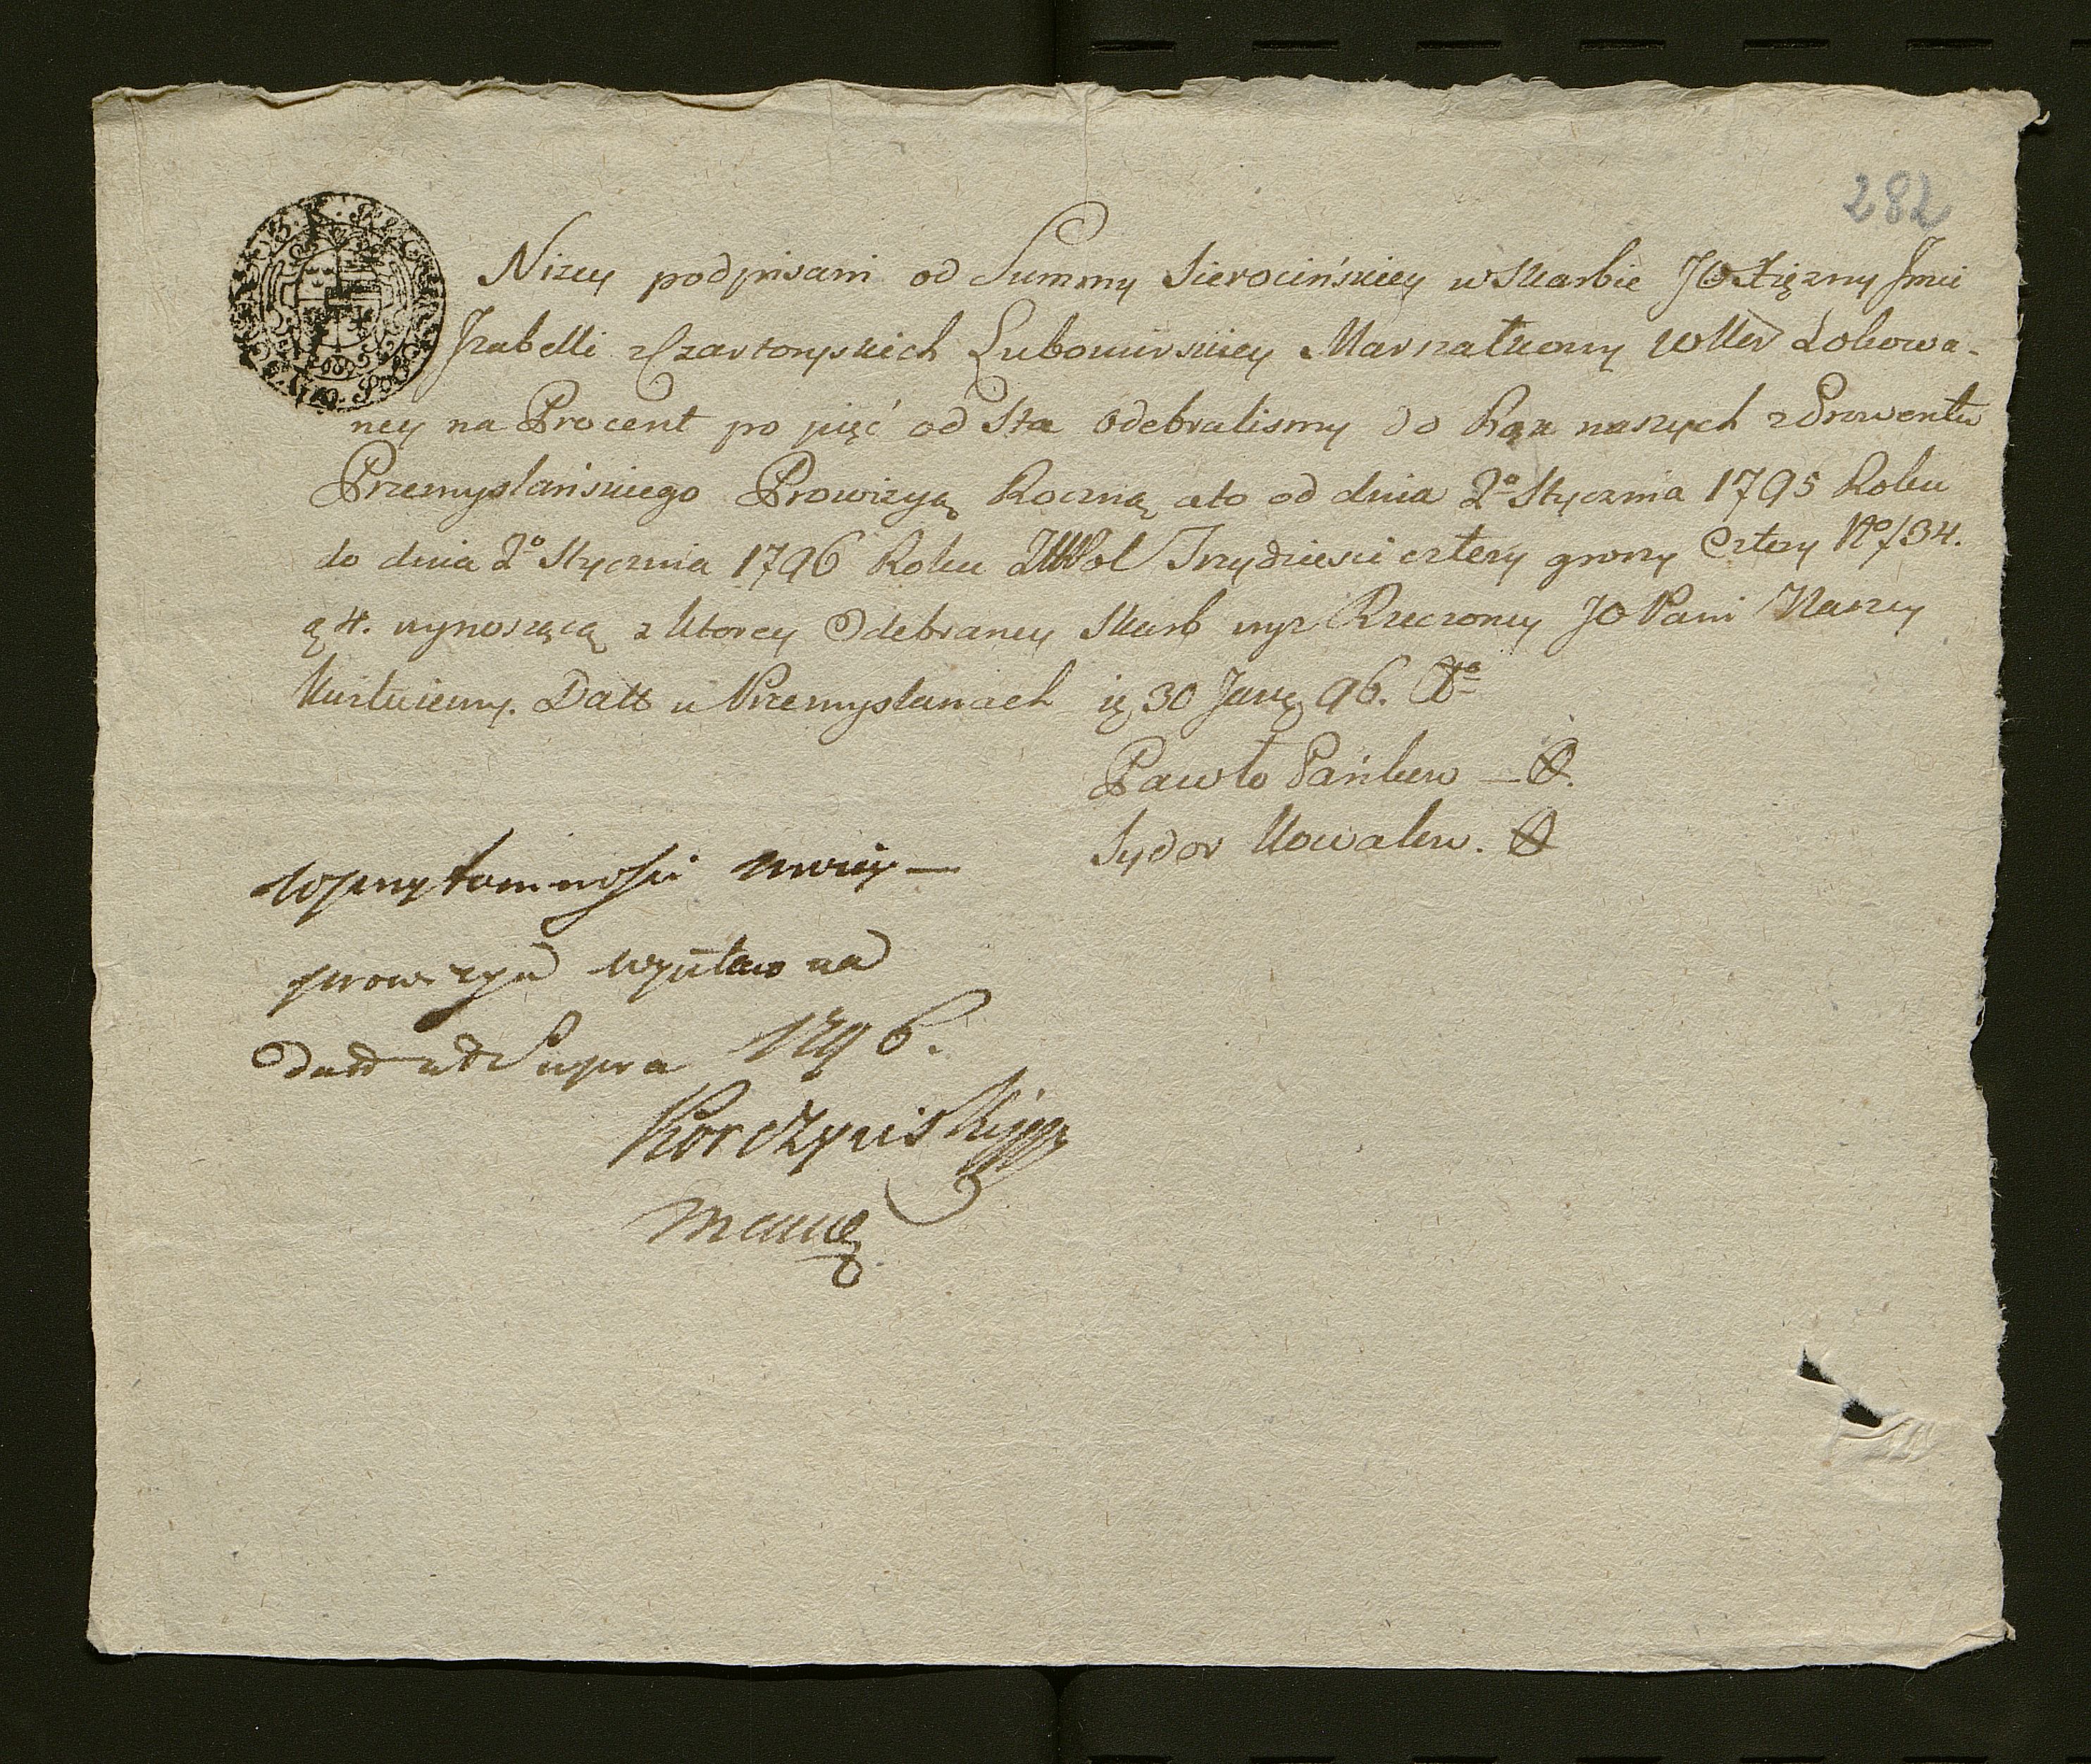 282
Nizey podpisani od Summy Sierocińskiey w Skarbie JO Xiężny Jmci
Izabelli z Czartoryskich Lubomirskiey Marszałkowy WKor Lokowa-
ney na Procent po pięć od Sta Odebralismy do Rąk naszych z Prowentu
Przemyslańskiego Prowizyą Roczną ato od dnia 2º Stycznia 1795 Roku
do dnia 2º Stycznia 1796 Roku Trzydziesci cztery groszy Cztery Nº/34.
g 4. wynoszącą z ktorey Odebraney Skarb wyz Rzeczoney JO Pani Naszey
kwituiemy. Datt w Przemyslanach 30 96.
Pawło Pańkow
Sydor Kowalew.
w przytomności moiey
prowizya wypłacona
Datt ut Supra 1796.
Korczyński